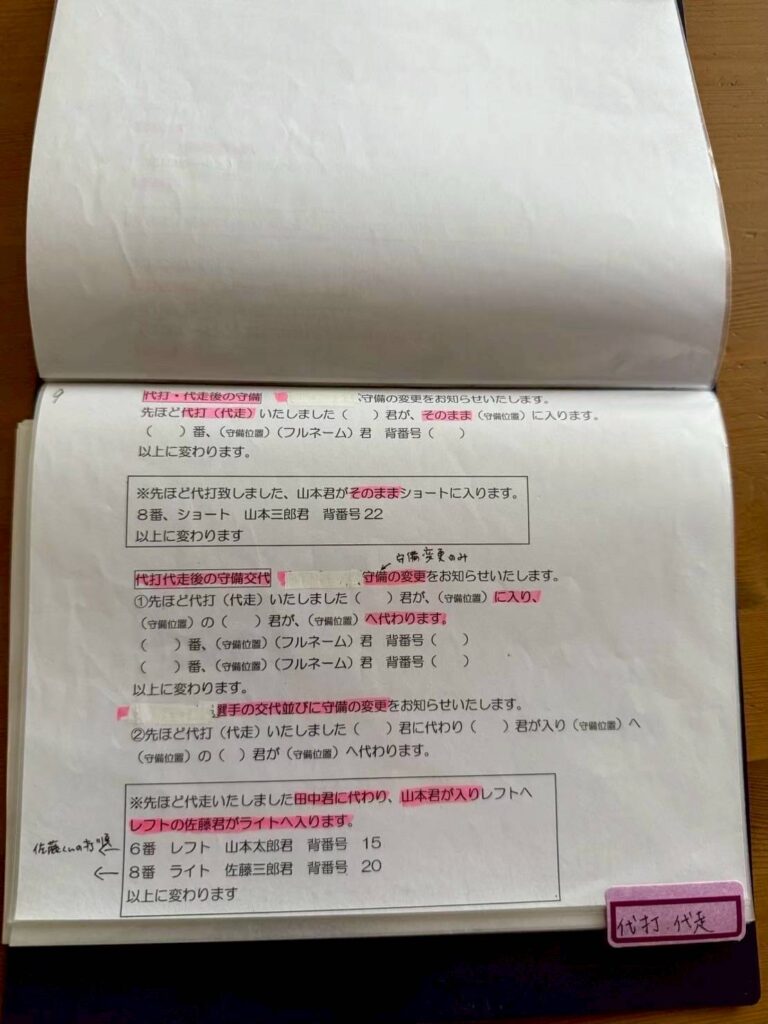 9
代打・代走後の守備 守備の変更をお知らせいたします。
先ほど代打(代走)いたしました( )君が、そのまま(守備位置)に入ります。
( )番、(守備位置)(フルネーム)君 背番号( )
以上に変わります。
※先ほど代打致しました、山本君がそのままショートに入ります。
8番、ショート 山本三郎君 背番号22
以上に変わります
守備変更のみ
代打代走後の守備交代 守備の変更をお知らせいたします。
①先ほど代打(代走)いたしました( )君が、(守備位置)に入り、
(守備位置)の( )君が、(守備位置)へ代わります。
( )番、(守備位置)(フルネーム)君 背番号( )
( )番、(守備位置)(フルネーム)君 背番号( )
以上に変わります。
選手の交代並びに守備の変更をお知らせいたします。
②先ほど代打(代走)いたしました( )君に代わり( )君が入り(守備位置)へ
(守備位置)の( )君が(守備位置)へ代わります。
※先ほど代走いたしました田中君に代わり、山本君が入りレフトへ
レフトの佐藤君がライトへ入ります。
佐藤くんの打順 ← 6番 レフト 山本太郎君 背番号 15
← 8番 ライト 佐藤三郎君 背番号 20
以上に変わります
代打.代走